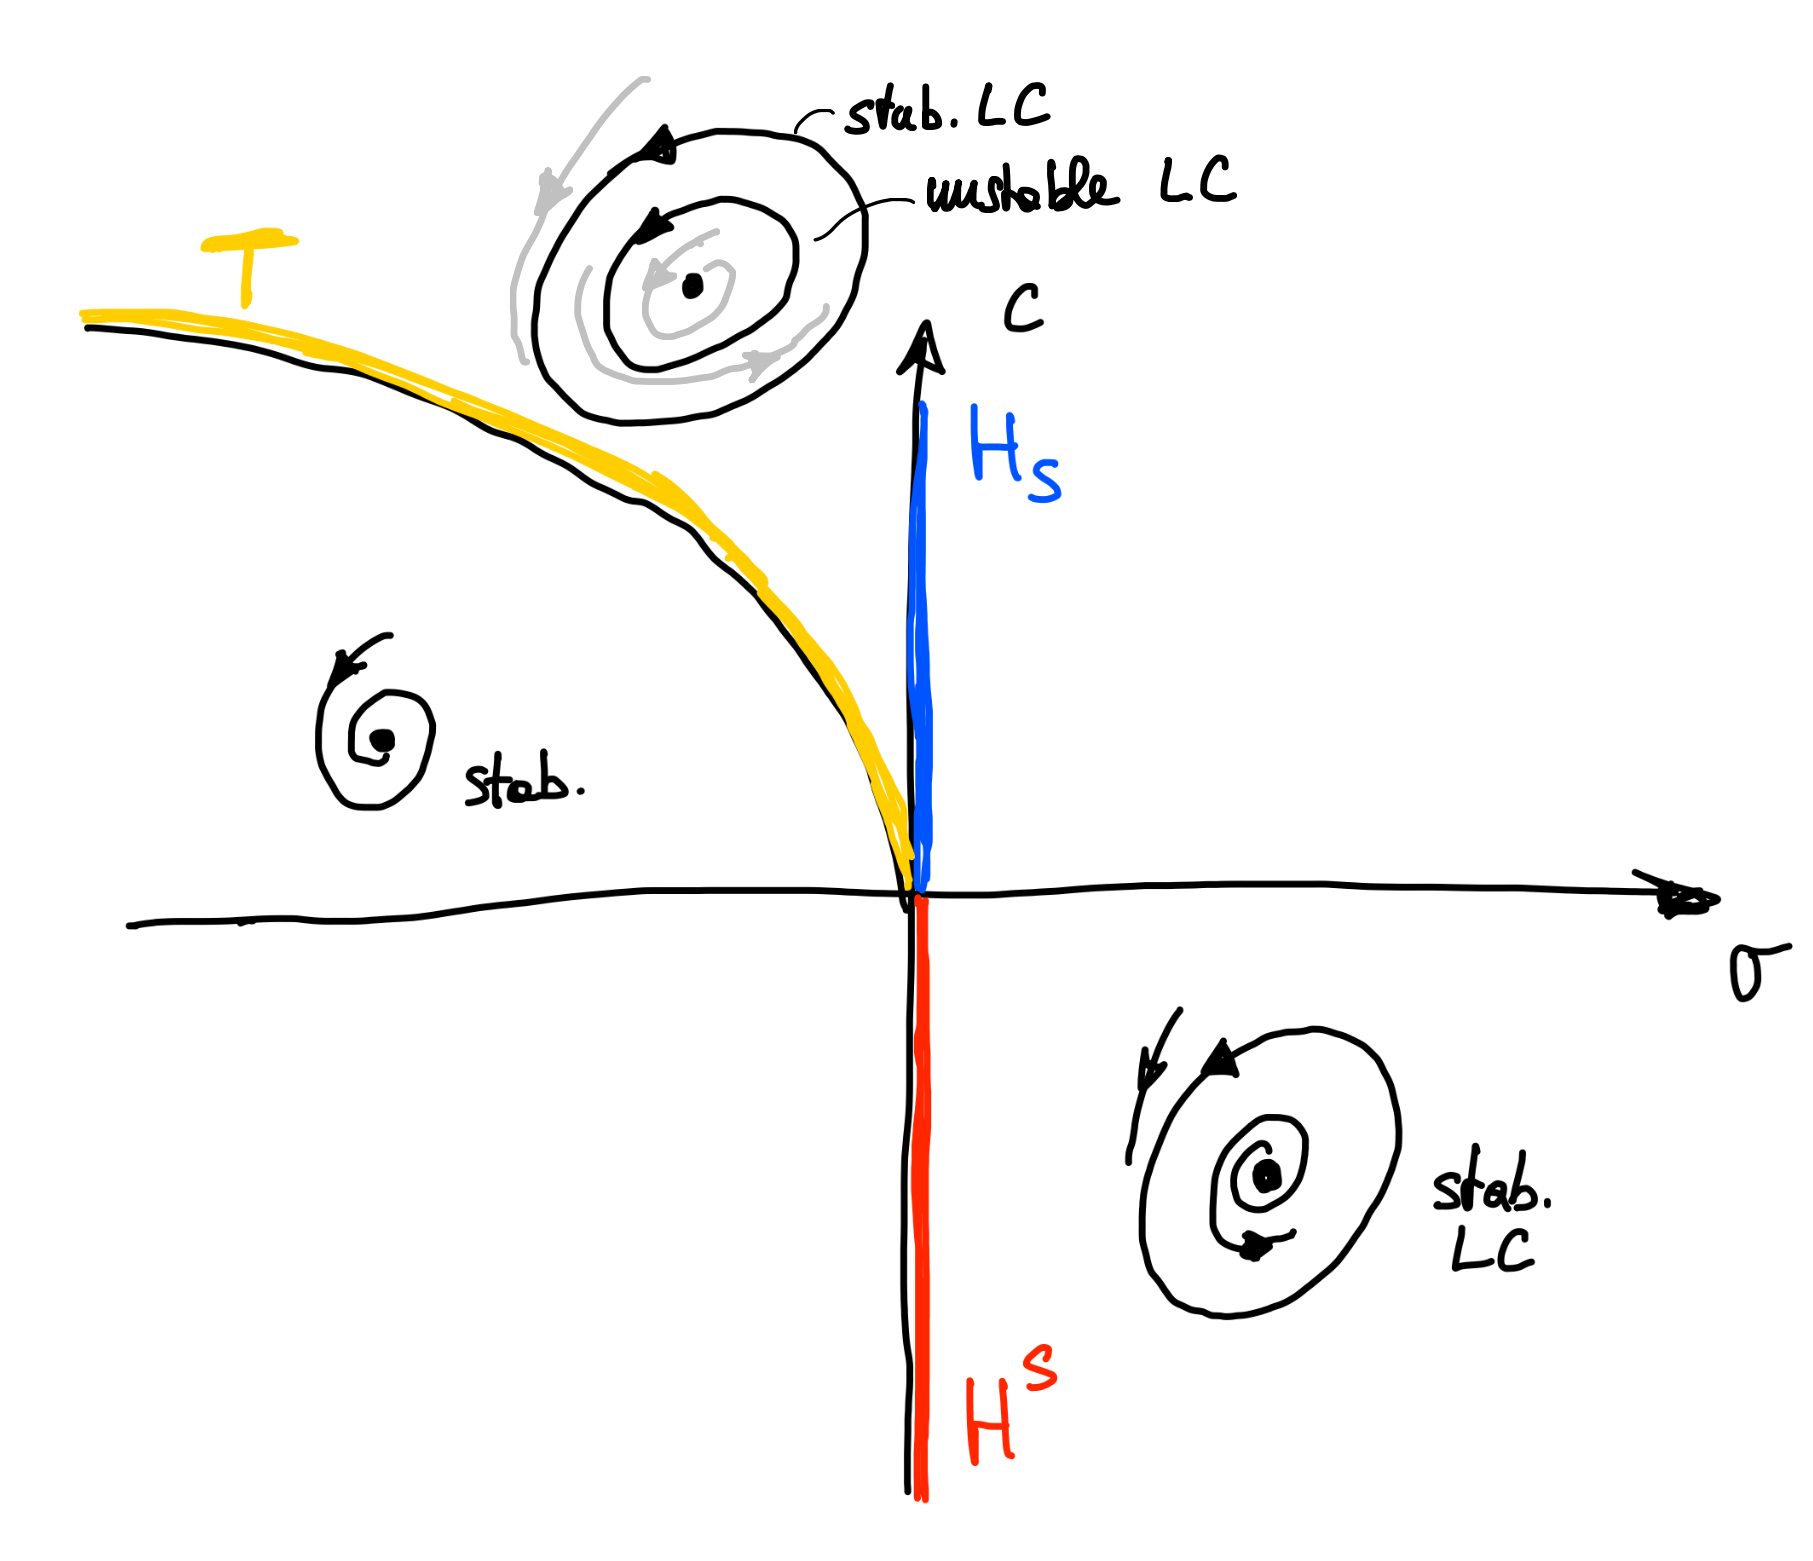 stab. LC
unstable LC
T
C
Hs
stab.
σ
stab.
LC
H^S